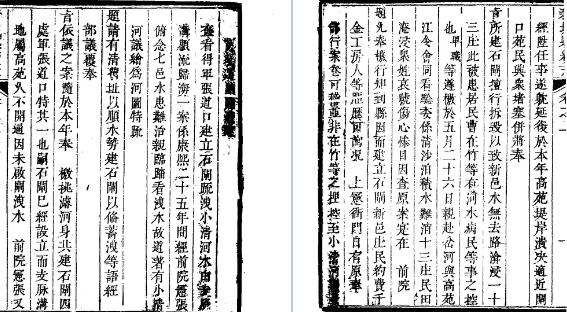 經歷任事遂就延後於本年高苑堤岸潰决適近閘
口苑民與衆堵塞併將奉
旨所建石閘擅行拆毀以致新邑水無去路淹浸一十
三庄此被患居民曹在竹等在河水病民等事之控
也卑職等遵檄於五月二十六日親赴岔河與高苑
江令會同看驗委係清沙泊積水難消十三庄民田
淹浸衆姓哀號傷心慘目因查原案定在 前院
題允奉檄行知到縣因而建立石閘新邑庄民約費千
金工房人等歷歷可質况 上憲衙門自有原奉
部行案卷可稽並非在竹等之捏控至小清河
查看得軍張道口建立石閘疏洩小清河水由支脉
溝順流歸海一案係康熙二十五年間經前院憲張
俯念七邑水患難治親臨踏看洩水故道著有小清
河議繪爲河圖特疏
題請有清積址以順水勢建石閘以備蓄洩等語經
部議覆奉
旨依議之案隨於本年奉 檄挑濬河身共建石閘四
處軍張道口特其一也嗣石閘已經設立而支脉溝
地屬高苑久不開通因未啟閘洩水 前院憲張又